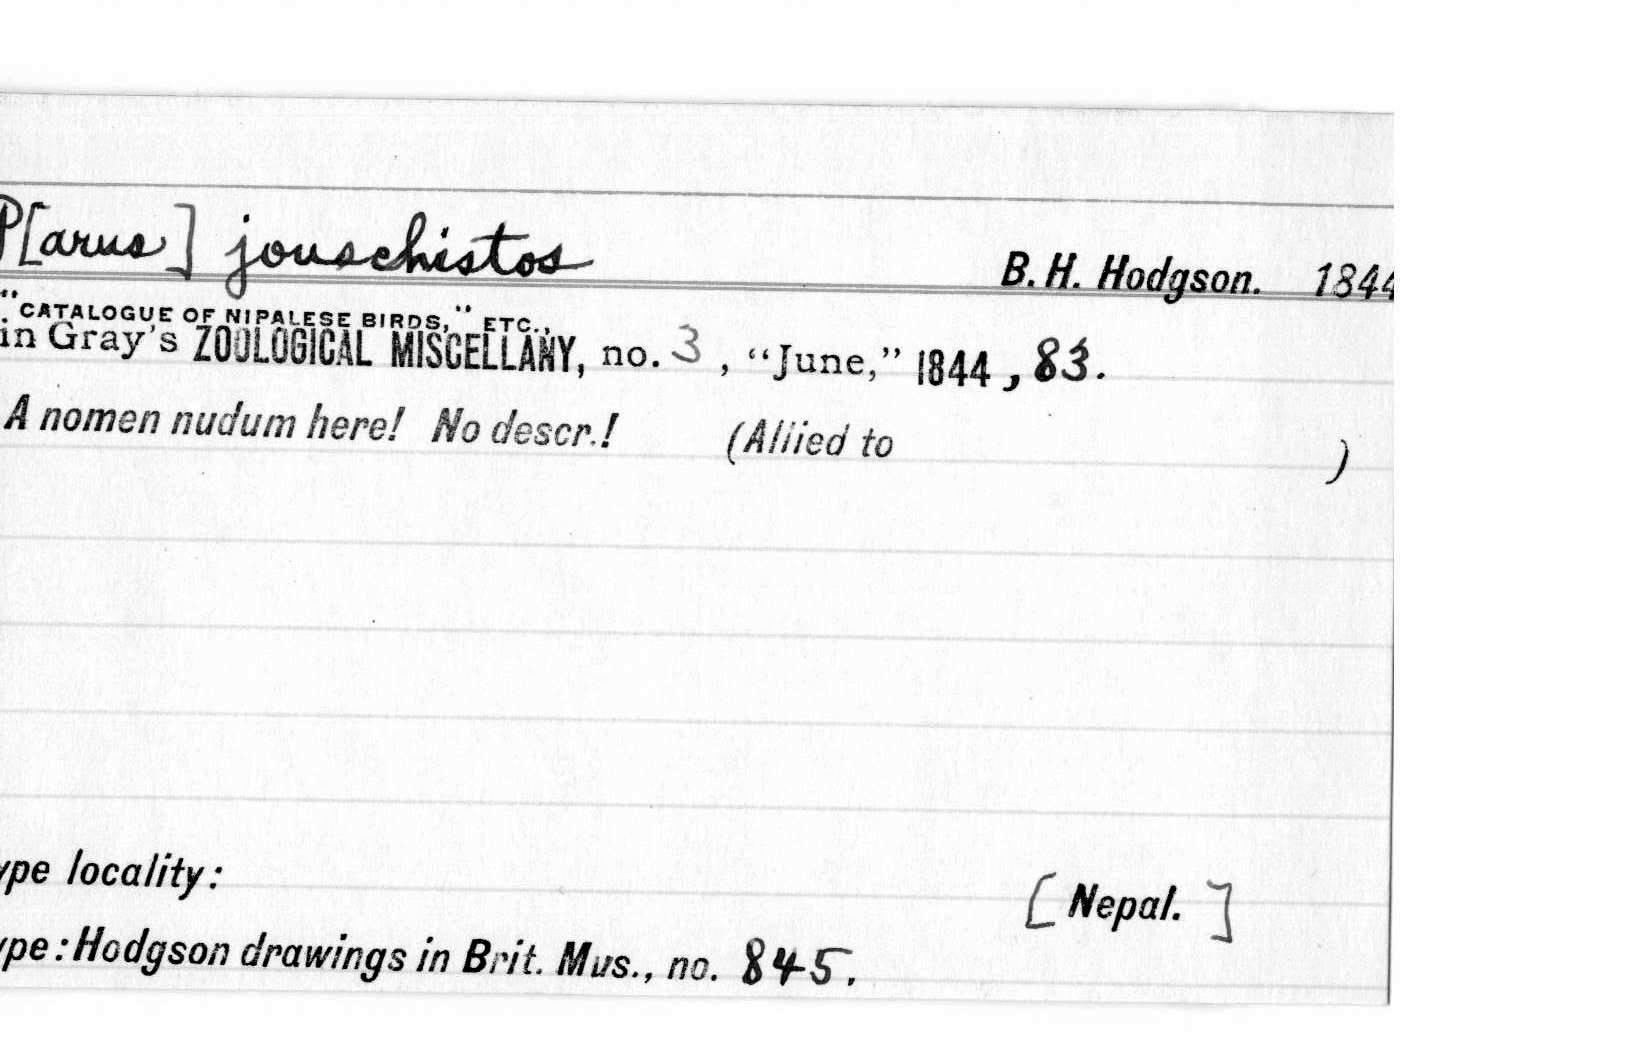 P[arus] jouschistos B. H. Hodgson. 1844
"CATALOGUE OF NIPALESE BIRDS," ETC.,
in Gray's ZOOLOGICAL MISCELLANY, no. 3, "June," 1844, 83.
A nomen nudum here! No descr.! (Allied to )
ype locality: [Nepal.]
ype: Hodgson drawings in Brit. Mus., no. 845.